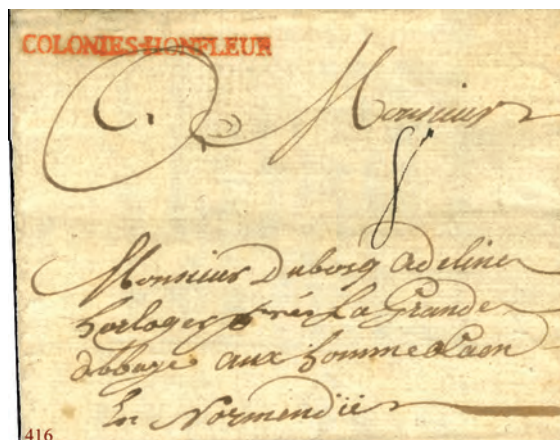 COLONIES-HONFLEUR
A Monsieur
8
Monsieur Dubosq Adeline
horloger prés La Grande
abbaye aux homme a Caen
En Normendie
416